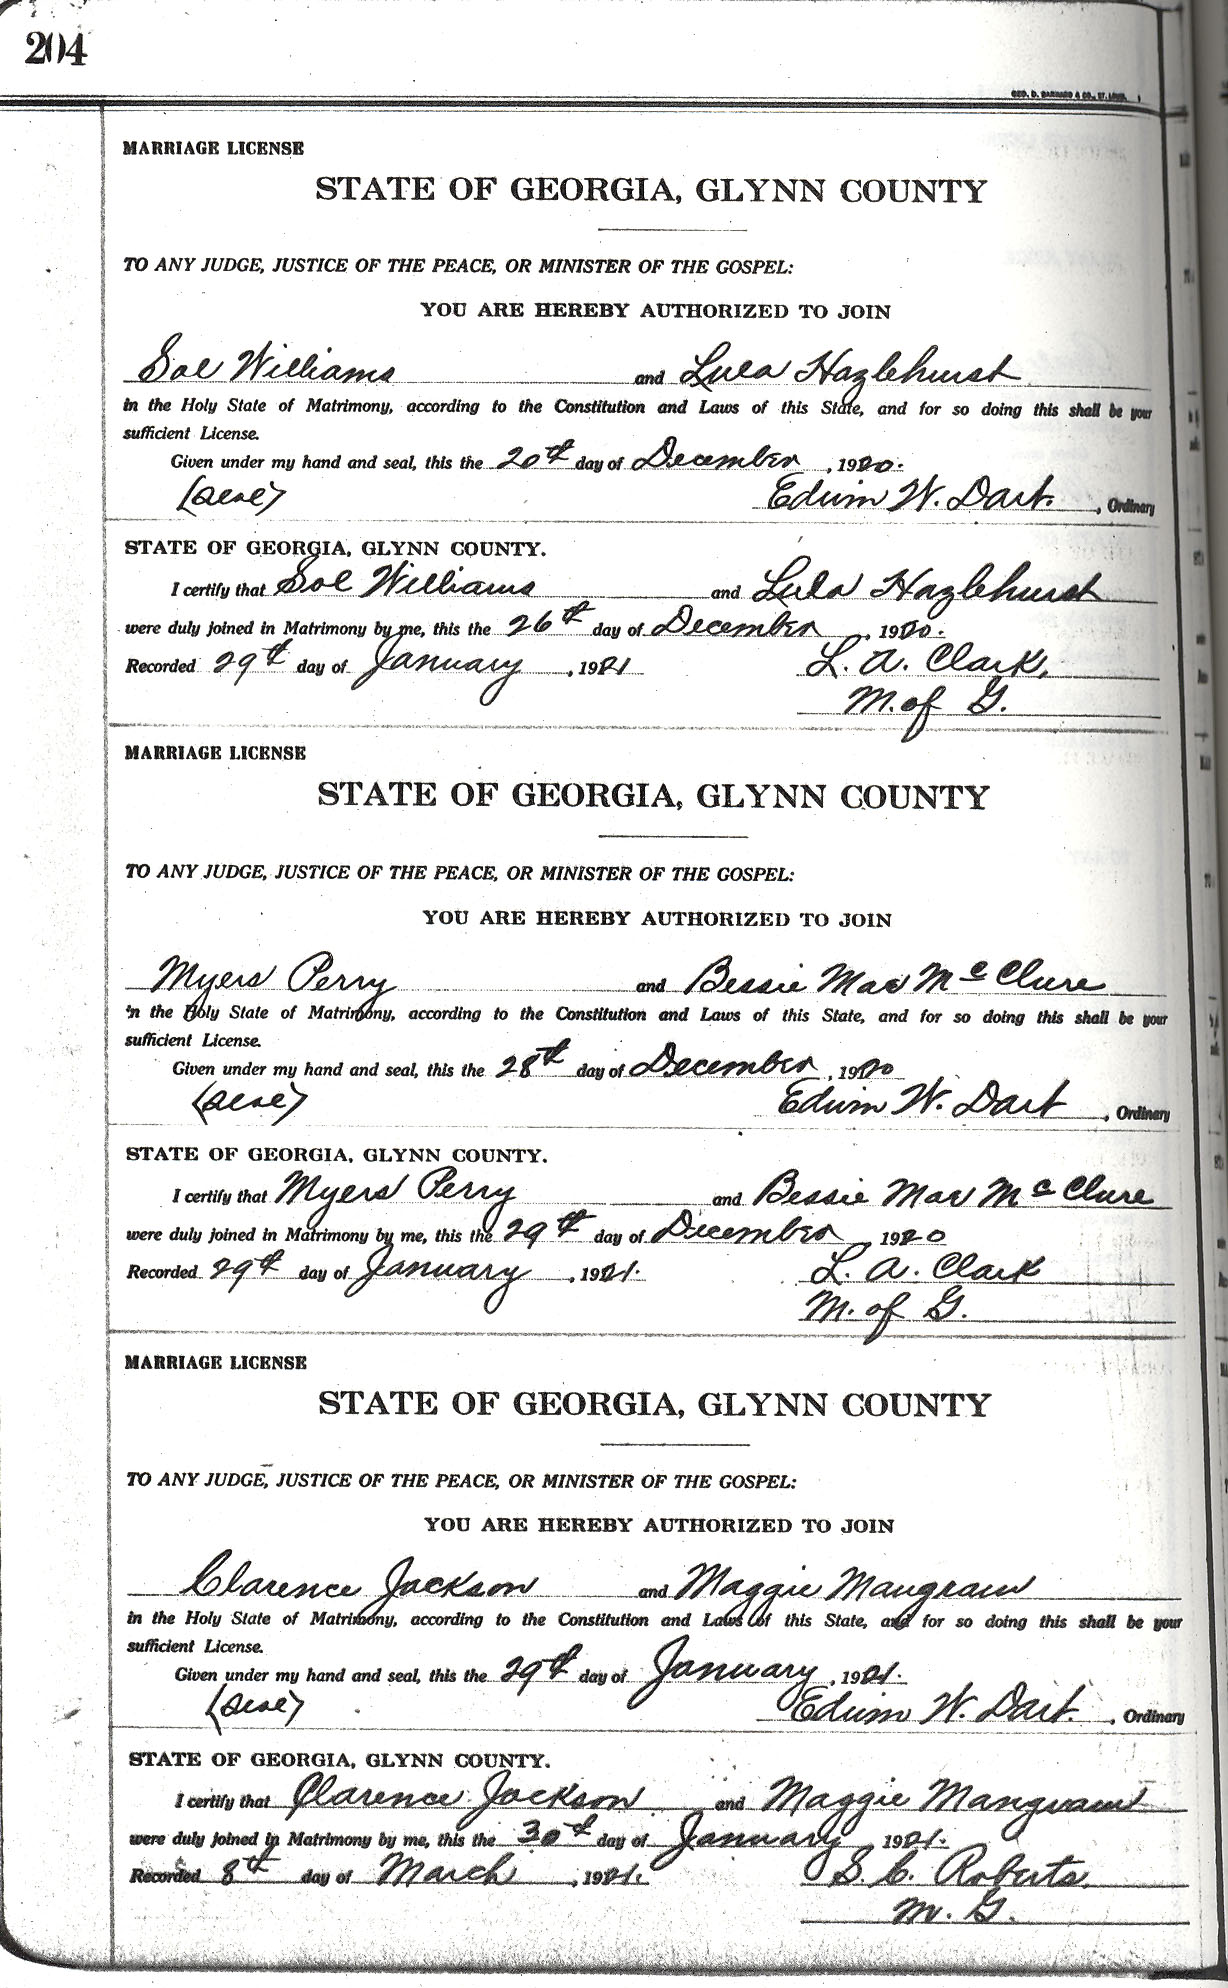 204
GEO. D. BARNARD & CO., ST. LOUIS
MARRIAGE LICENSE
STATE OF GEORGIA, GLYNN COUNTY
TO ANY JUDGE, JUSTICE OF THE PEACE, OR MINISTER OF THE GOSPEL:
YOU ARE HEREBY AUTHORIZED TO JOIN
Sol Williams and Lula Hazlehurst
in the Holy State of Matrimony, according to the Constitution and Laws of this State, and for so doing this shall be your
sufficient License.
Given under my hand and seal, this the 20th day of December, 1920.
(Seal) Edwin W. Dart., Ordinary
STATE OF GEORGIA, GLYNN COUNTY.
I certify that Sol Williams and Lula Hazlehurst
were duly joined in Matrimony by me, this the 26th day of December, 1920.
Recorded 29th day of January, 1921 L. A. Clark,
M. of G.
MARRIAGE LICENSE
STATE OF GEORGIA, GLYNN COUNTY
TO ANY JUDGE, JUSTICE OF THE PEACE, OR MINISTER OF THE GOSPEL:
YOU ARE HEREBY AUTHORIZED TO JOIN
Myers Perry and Bessie Mae McClure
in the Holy State of Matrimony, according to the Constitution and Laws of this State, and for so doing this shall be your
sufficient License.
Given under my hand and seal, this the 28th day of December, 1920
(Seal) Edwin W. Dart, Ordinary
STATE OF GEORGIA, GLYNN COUNTY.
I certify that Myers Perry and Bessie Mae McClure
were duly joined in Matrimony by me, this the 29th day of December, 1920
Recorded 29th day of January, 1921. L. A. Clark
M. of G.
MARRIAGE LICENSE
STATE OF GEORGIA, GLYNN COUNTY
TO ANY JUDGE, JUSTICE OF THE PEACE, OR MINISTER OF THE GOSPEL:
YOU ARE HEREBY AUTHORIZED TO JOIN
Clarence Jackson and Maggie Mangram
in the Holy State of Matrimony, according to the Constitution and Laws of this State, and for so doing this shall be your
sufficient License.
Given under my hand and seal, this the 29th day of January, 1921.
(Seal) Edwin W. Dart., Ordinary
STATE OF GEORGIA, GLYNN COUNTY.
I certify that Clarence Jackson and Maggie Mangram
were duly joined in Matrimony by me, this the 30th day of January, 1921.
Recorded 8th day of March, 1921. S. C. Roberts,
M. G.